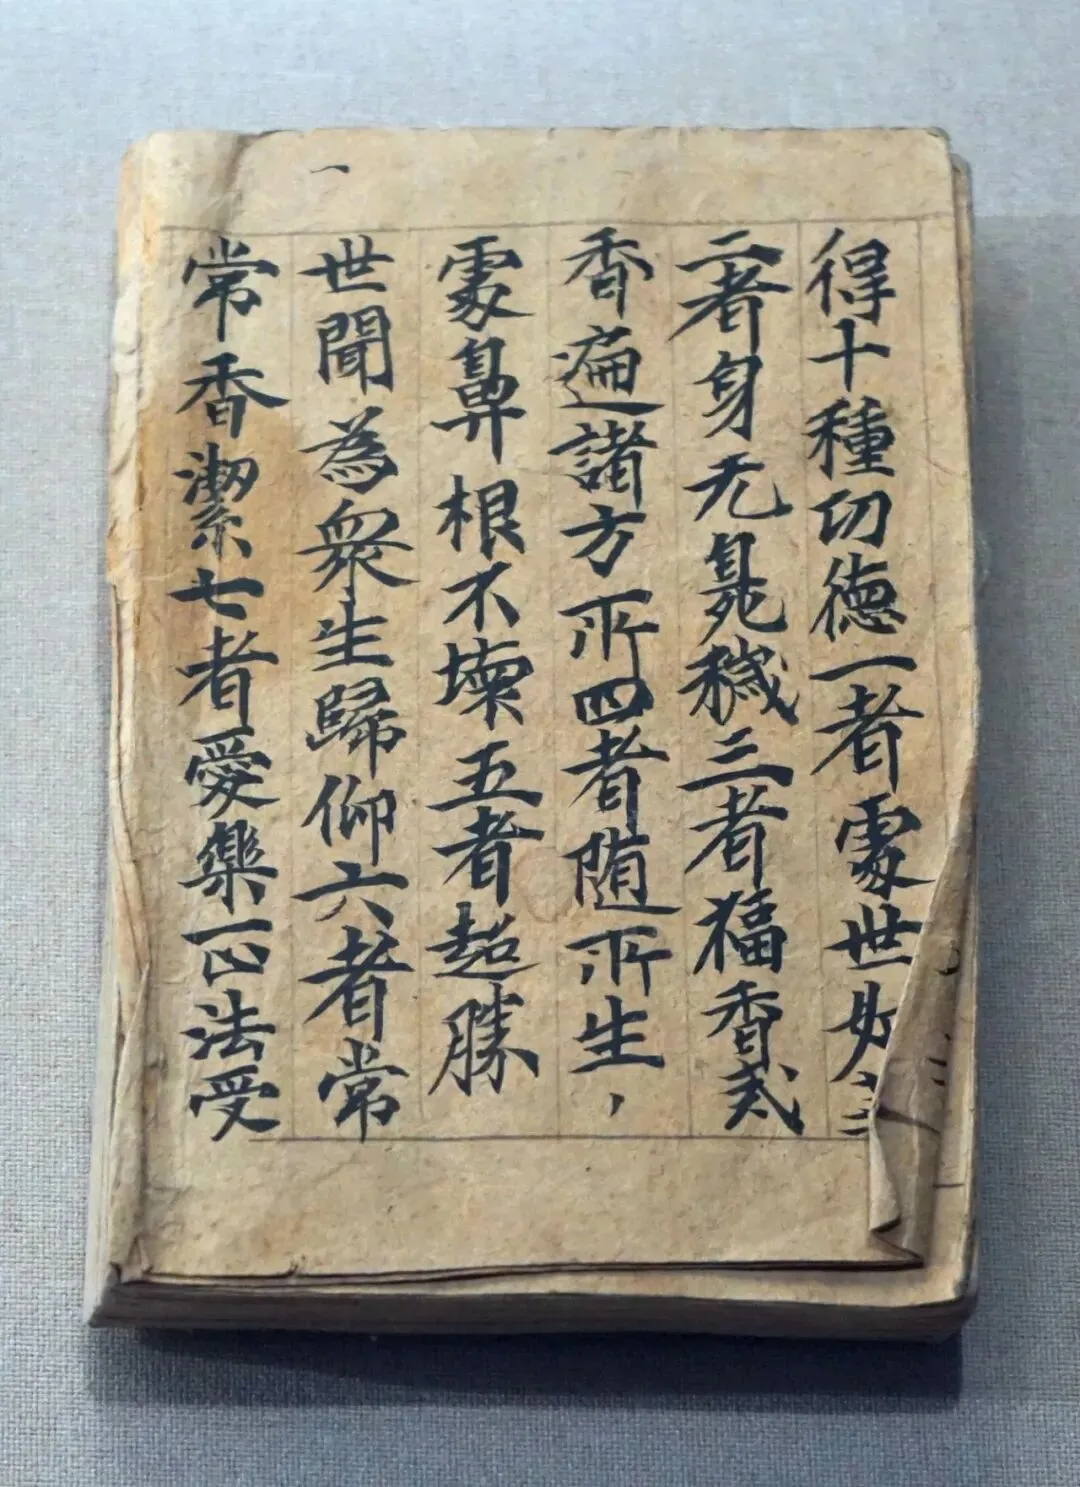 得十種切德一者處世如
二者身无臭穢三者福香弍
香遍諸方所四者随所生
處鼻根不壞五者超勝
世聞為衆生歸仰六者常
常香潔七者愛樂正法受